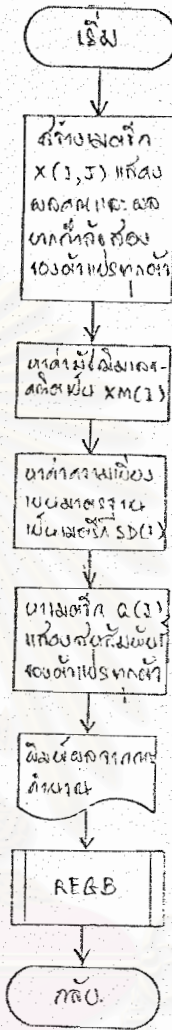 เริ่ม
สร้างเมตริก
X(I,J) แสดง
ผลคูณและผล
บวกกำลังสอง
ของตัวแปรทุกตัว
หาค่ามัชฌิมเลข-
คณิตเป็น XM(I)
หาค่าความเบี่ยง
เบนมาตรฐาน
เป็นเมตริก SD(I)
หาเมตริก Q(I)
แสดงสหสัมพันธ์
ของตัวแปรทุกตัว
พิมพ์ผลจากการ
คำนวณ
REGB
กลับ.